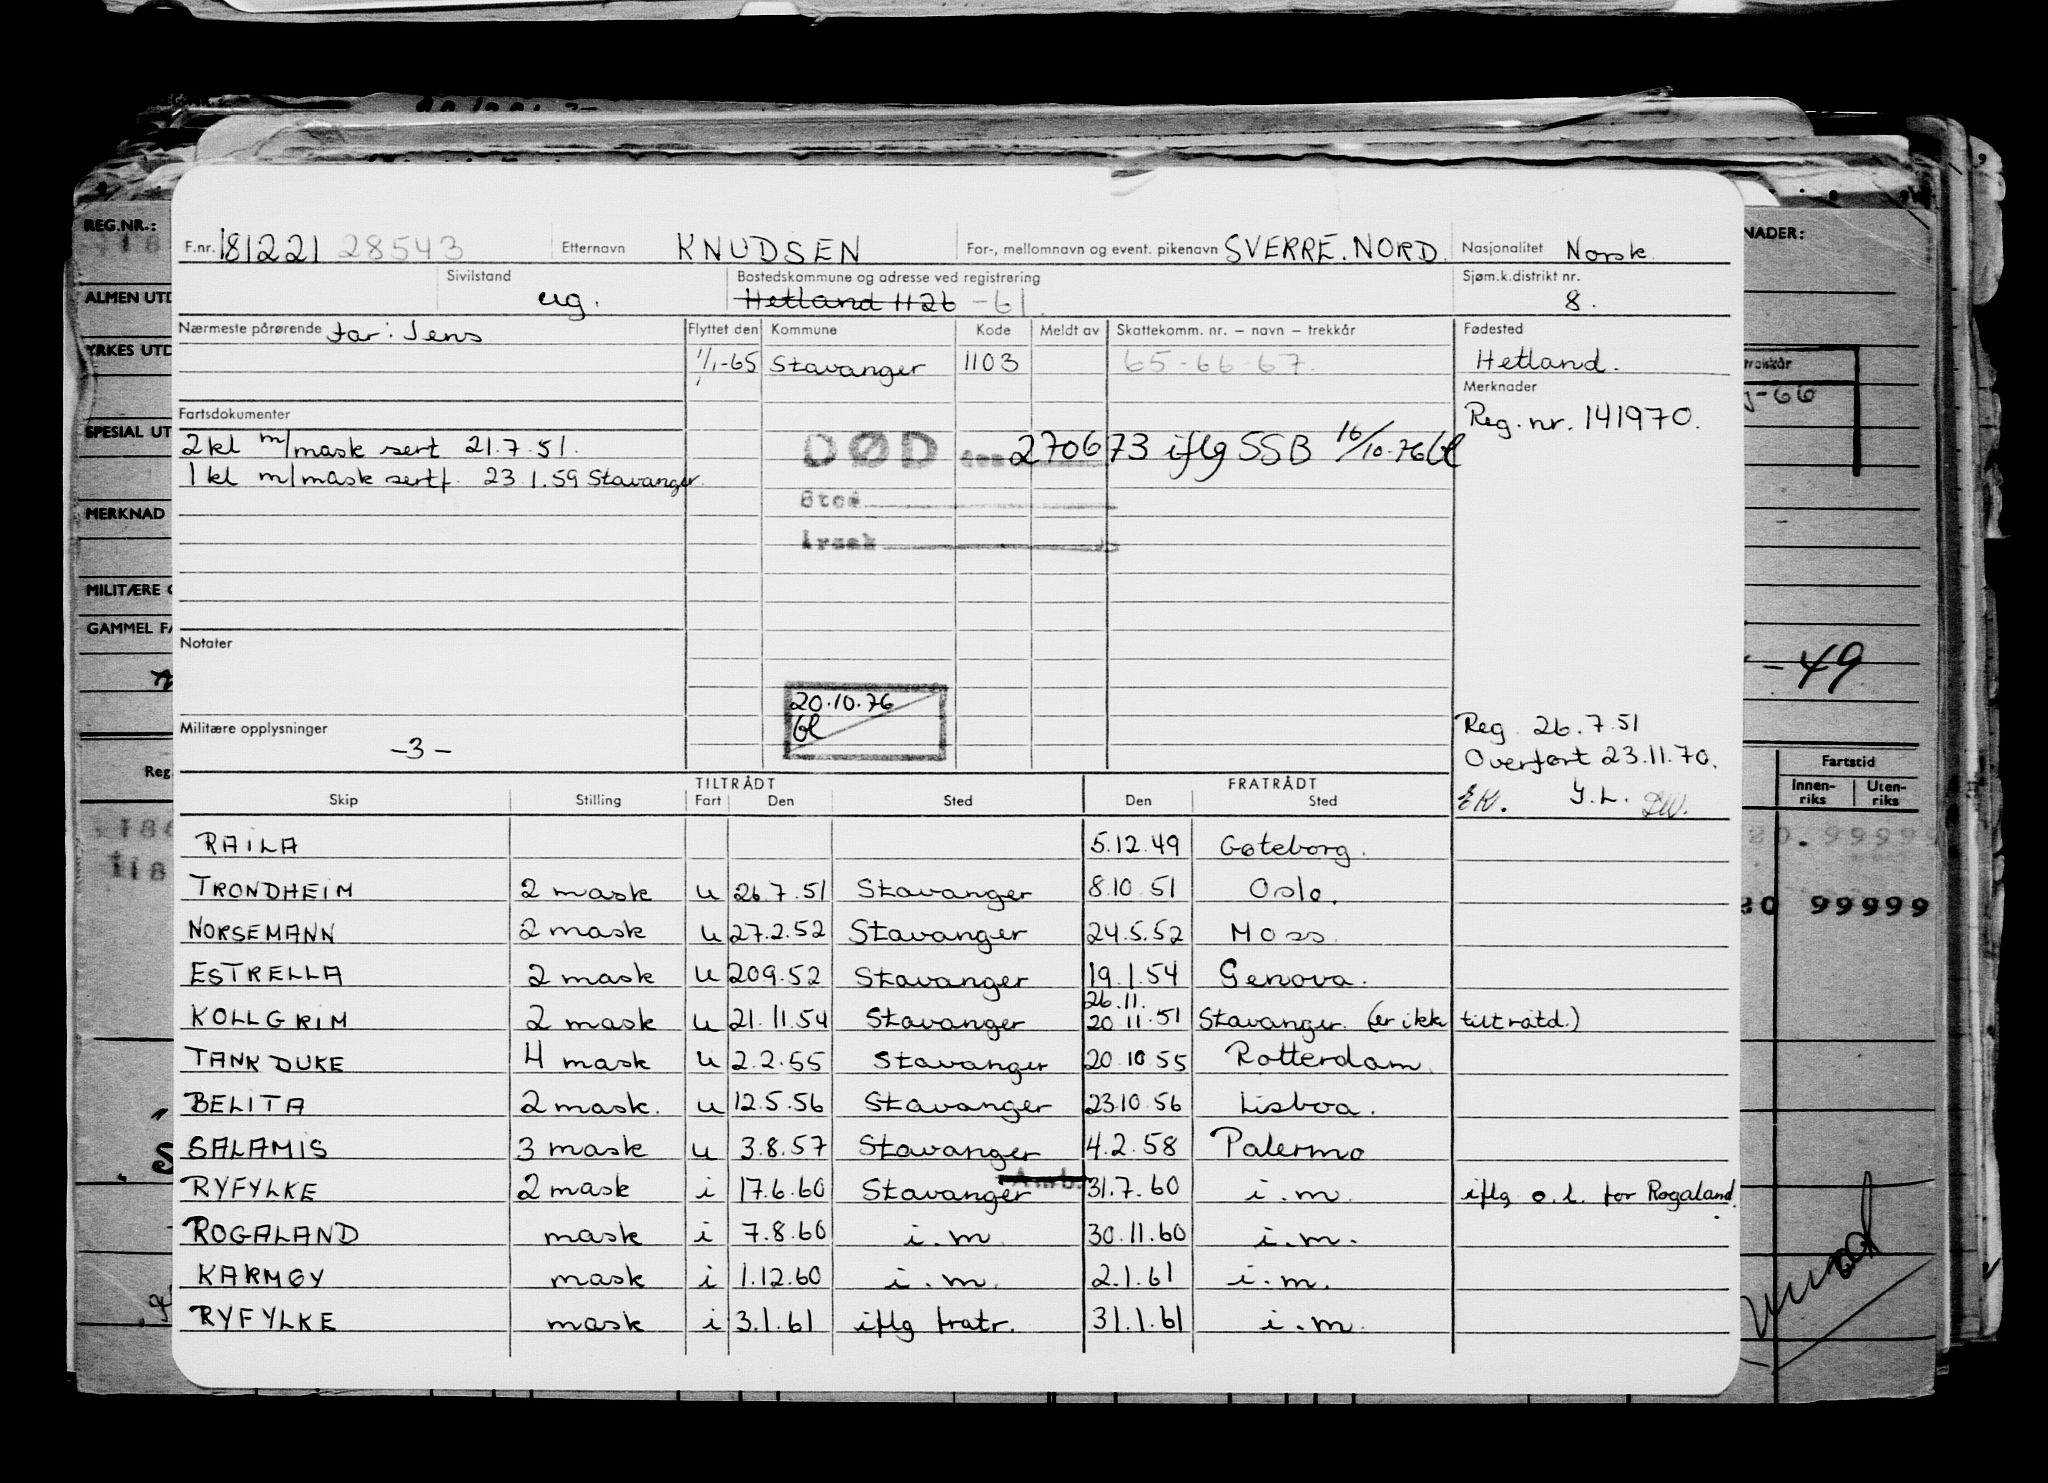 REG.NR.:
NADER:
F.nr. 181221 28543 Etternavn KNUDSEN For-, mellomnavn og event. pikenavn SVERRE.NORD. Nasjonalitet Norsk.
ALMEN UTD
Sivilstand ug. Bostedskommune og adresse ved registrering Hetland 1126 -61 Sjøm.k.distrikt nr. 8.
Nærmeste pårørende far: Jens Flyttet den Kommune Kode Meldt av Skattekomm. nr. – navn – trekkår Fødested
YRKES UTD
1/1-65 Stavanger 1103 65-66-67. Hetland.
Merknader
-66
Fartsdokumenter Reg. nr. 141970.
SPESIAL UT
2 kl m/mask sert 21.7.51. DØD den 270673 iflg SSB 16/10-76 bl
1 kl m/mask sertf. 23.1.59 Stavanger.
Sted
Årsak
MERKNAD
MILITÆRE
GAMMEL FA
Notater
-49
20.10.76
bl
Militære opplysninger -3-
Reg. 26.7.51
Overført 23.11.70.
EK. Y.L.
Reg. Fartstid
Innen-riks Uten-riks
TILTRÅDT FRATRÅDT
Skip Stilling Fart Den Sted Den Sted
RAILA 5.12.49 Gøteborg.
TRONDHEIM 2 mask u 26.7.51 Stavanger 8.10.51 Oslo.
99999
NORSEMANN 2 mask u 27.2.52 Stavanger 24.5.52 Moss.
ESTRELLA 2 mask u 20.9.52 Stavanger 19.1.54 Genova.
26.11.
KOLLGRIM 2 mask u 21.11.54 Stavanger 20.11.51 Stavanger. (er ikke tiltrådt.)
TANK DUKE 4 mask u 2.2.55 Stavanger 20.10.55 Rotterdam.
BELITA 2 mask. u 12.5.56 Stavanger 23.10.56 Lisboa.
SALAMIS 3 mask u 3.8.57 Stavanger 4.2.58 Palermo
RYFYLKE 2 mask i 17.6.60 Stavanger 31.7.60 i.m. iflg o.l. for Rogaland.
ROGALAND mask i 7.8.60 i.m. 30.11.60 i.m.
KARMØY mask i 1.12.60 i.m. 2.1.61 i.m.
RYFYLKE mask i 3.1.61 iflg fratr. 31.1.61 i.m.